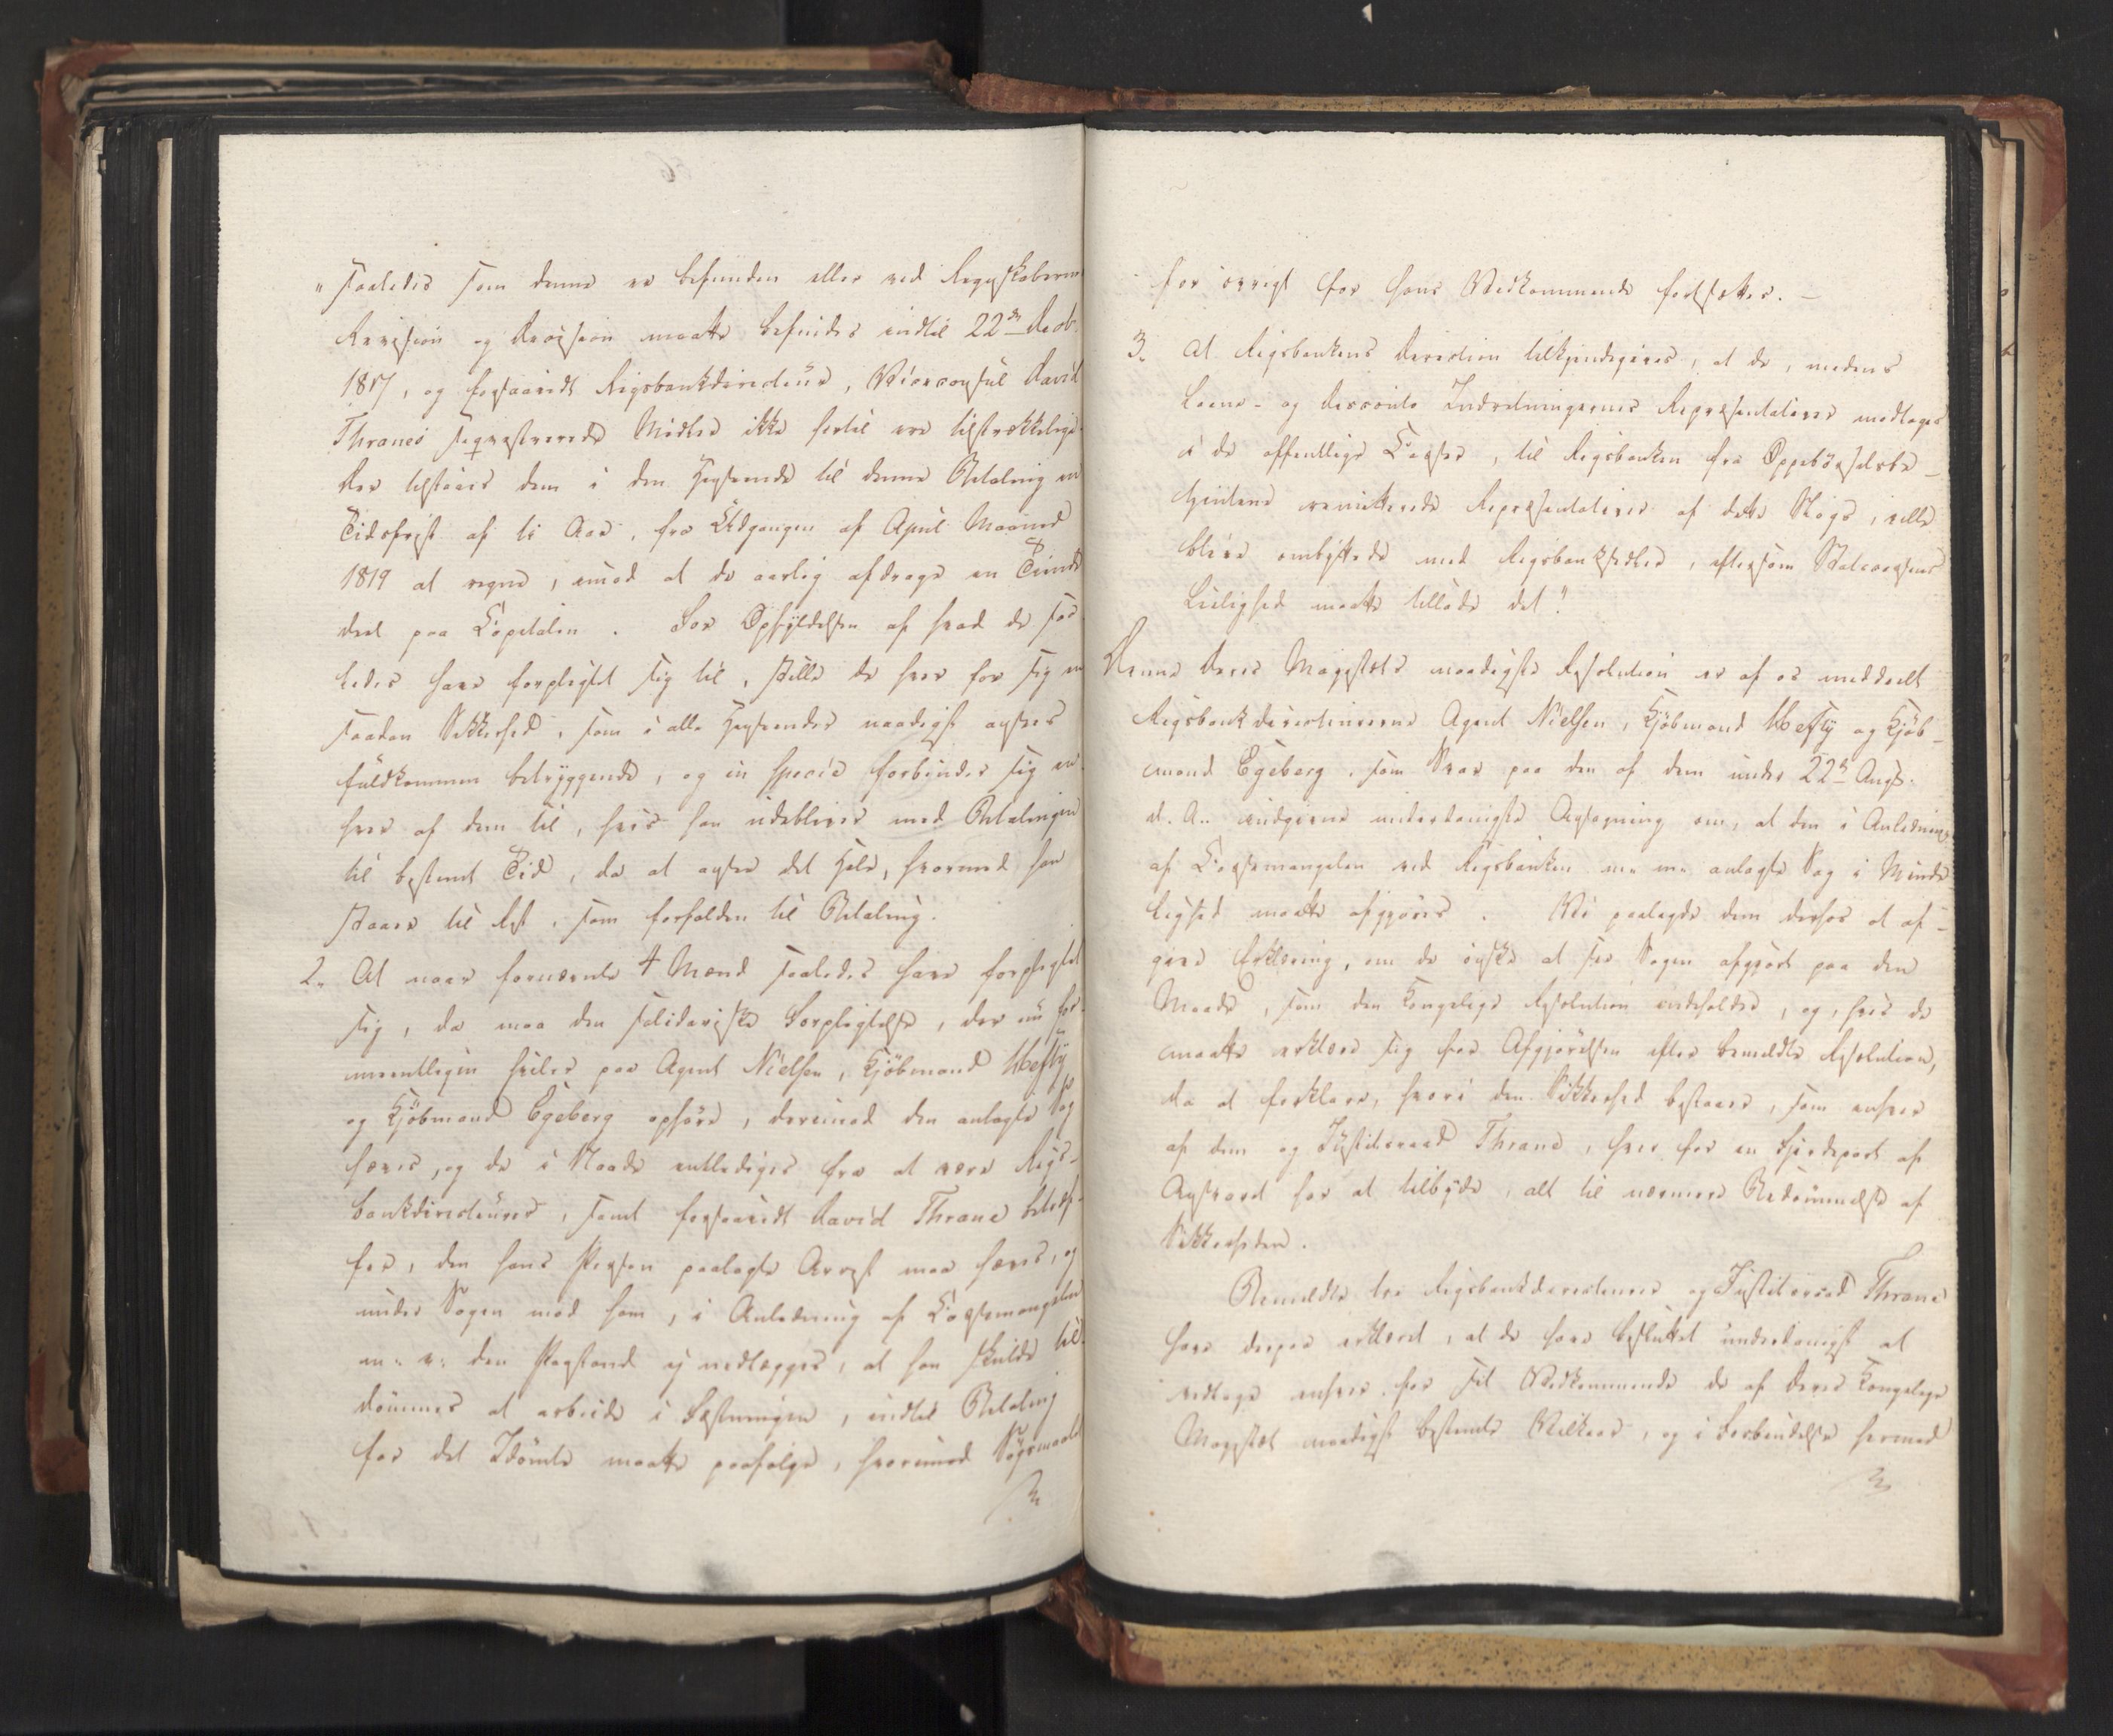 "saaledes som denne er befunden eller ved Regnskabernes
Revision og Decision maatte befindes indtil 22de Decbr.
1817, og forhenværende Rigsbankdirecteur, Viceconsul David
Thranes seqvestrerede Midler ikke hertil ere tilstrækkelige.
Der tilstaaes dem i den Henseende til denne Betaling en
Tidsfrist af ti Aar, fra Udgangen af April Maaned
1819 at regne, imod at de aarlig afdrage en Tiende
deel paa Capitalen. For Opfyldelsen af hvad de saa-
ledes have forpligtet sig til, stille de hver for sig en
saadan Sikkerhed, som i alle Henseender naadigst ansees
fuldkommen betryggende, og in specie forbinder sig en-
hver af dem til, hvis han udebliver med Betalingen
til bestemt Tid, da at ansee det Hele, hvormed han
staaer til Rest, som forfalden til Betaling.
2. At naar fornævnte 4 Mænd saaledes have forpligtet
sig, da maa den solidariske Forpligtelse, der nu for-
meentligen hviler paa Agent Nielsen, Kjöbmand Hefty
og Kjöbmand Egeberg ophöre, derimod den anlagte Sag
hæves, og de i Naade entlediges fra at være Rigs-
bankdirecteurer, samt forsaavidt David Thrane betræf-
fer, den hans Person paalagte Arrest maa hæves, og
under Sagen mod ham, i Anledning af Cassemangelen
m. v. den Paastand ej nedlægges, at han skulde til-
dömmes at arbeide i Fæstningen, indtil Betaling
for det Idömte maatte paafölge, hvorimod Sögsmaalet
for övrigt for hans Vedkommende fortsættes. —
3. At Rigsbankens Direction tilkjendegives, at de, medens
Laane- og Disconto Indretningernes Repræsentativer modtages
i de offentlige Casser, til Rigsbanken fra Oppebörselsbe-
tjentene remitterede Repræsentativer af dette Slags, ville
blive ombyttede med Rigsbanksedler, eftersom Statscassens
Leilighed maatte tillade det."
Denne Deres Majestæts naadigste Resolution er af os meddeelt
Rigsbankdirecteurerne Agent Nielsen, Kjöbmand Hefty og Kjöb-
mand Egeberg, som Svar paa den af dem under 22de Augt.
d. A. indgivne underdanigste Ansögning om, at den i Anledning
af Cassemangelen ved Rigsbanken m. m. anlagte Sag i Minde-
lighed maatte afgjöres. Vi paalagde dem derhos at af-
give Erklæring, om de önske at see Sagen afgjort paa den
Maade, som den Kongelige Resolution indeholder, og, hvis de
maatte erklære sig for Afgjörelsen efter bemeldte Resolution,
da at forklare, hvori den Sikkerhed bestaaer, som enhver
af dem og Justitsraad Thrane, hver for en Fjerdepart af
Ansvaret har at tilbyde, alt til nærmere Bedömmelse af
Sikkerheden.
Bemeldte tre Rigsbankdirecteurer og Justitsraad Thrane
have derpaa erklæret, at de have besluttet underdanigst at
vedtage enhver for sit Vedkommende de af Deres Kongelige
Majestæt naadigst bestemte Vilkaar, og i Forbindelse hermed